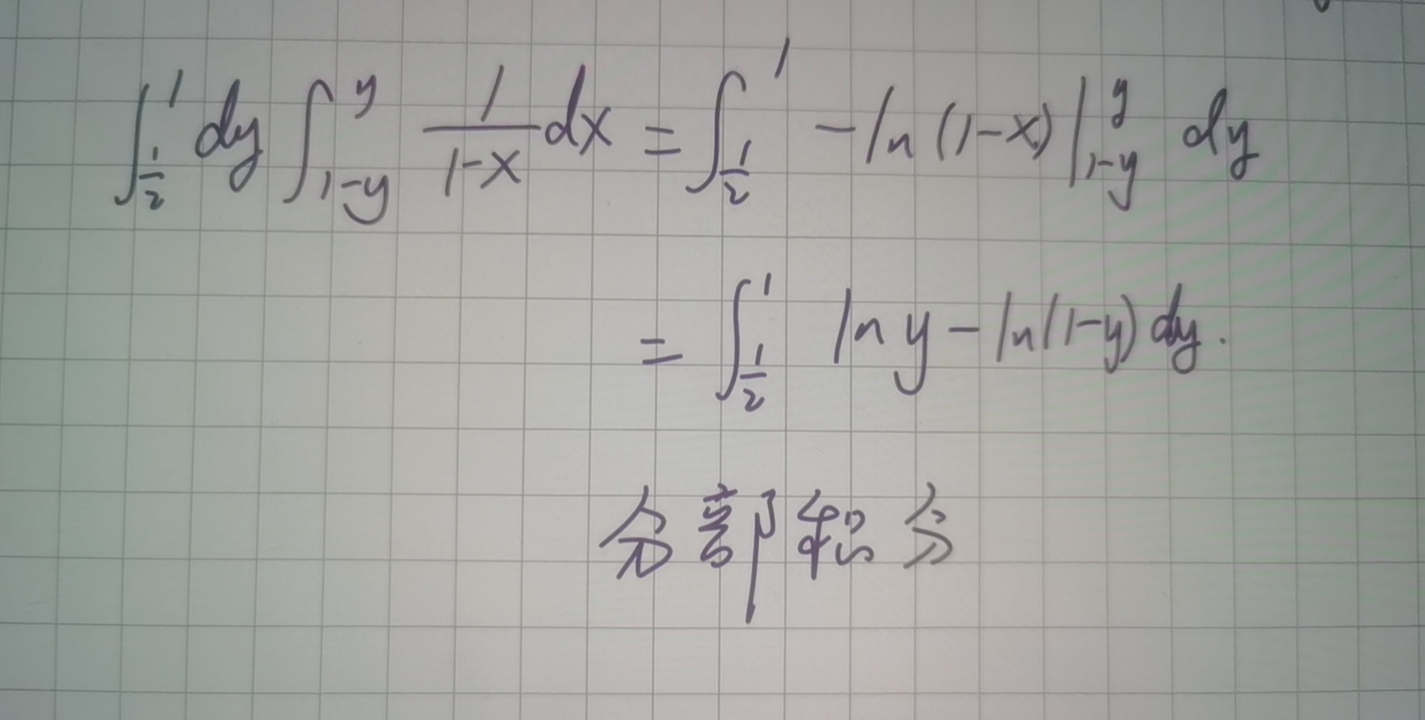 ∫_{1/2}^{1} dy ∫_{1-y}^{y} 1/(1-x) dx = ∫_{1/2}^{1} -ln(1-x)|_{1-y}^{y} dy
= ∫_{1/2}^{1} ln y - ln(1-y) dy.
分部积分